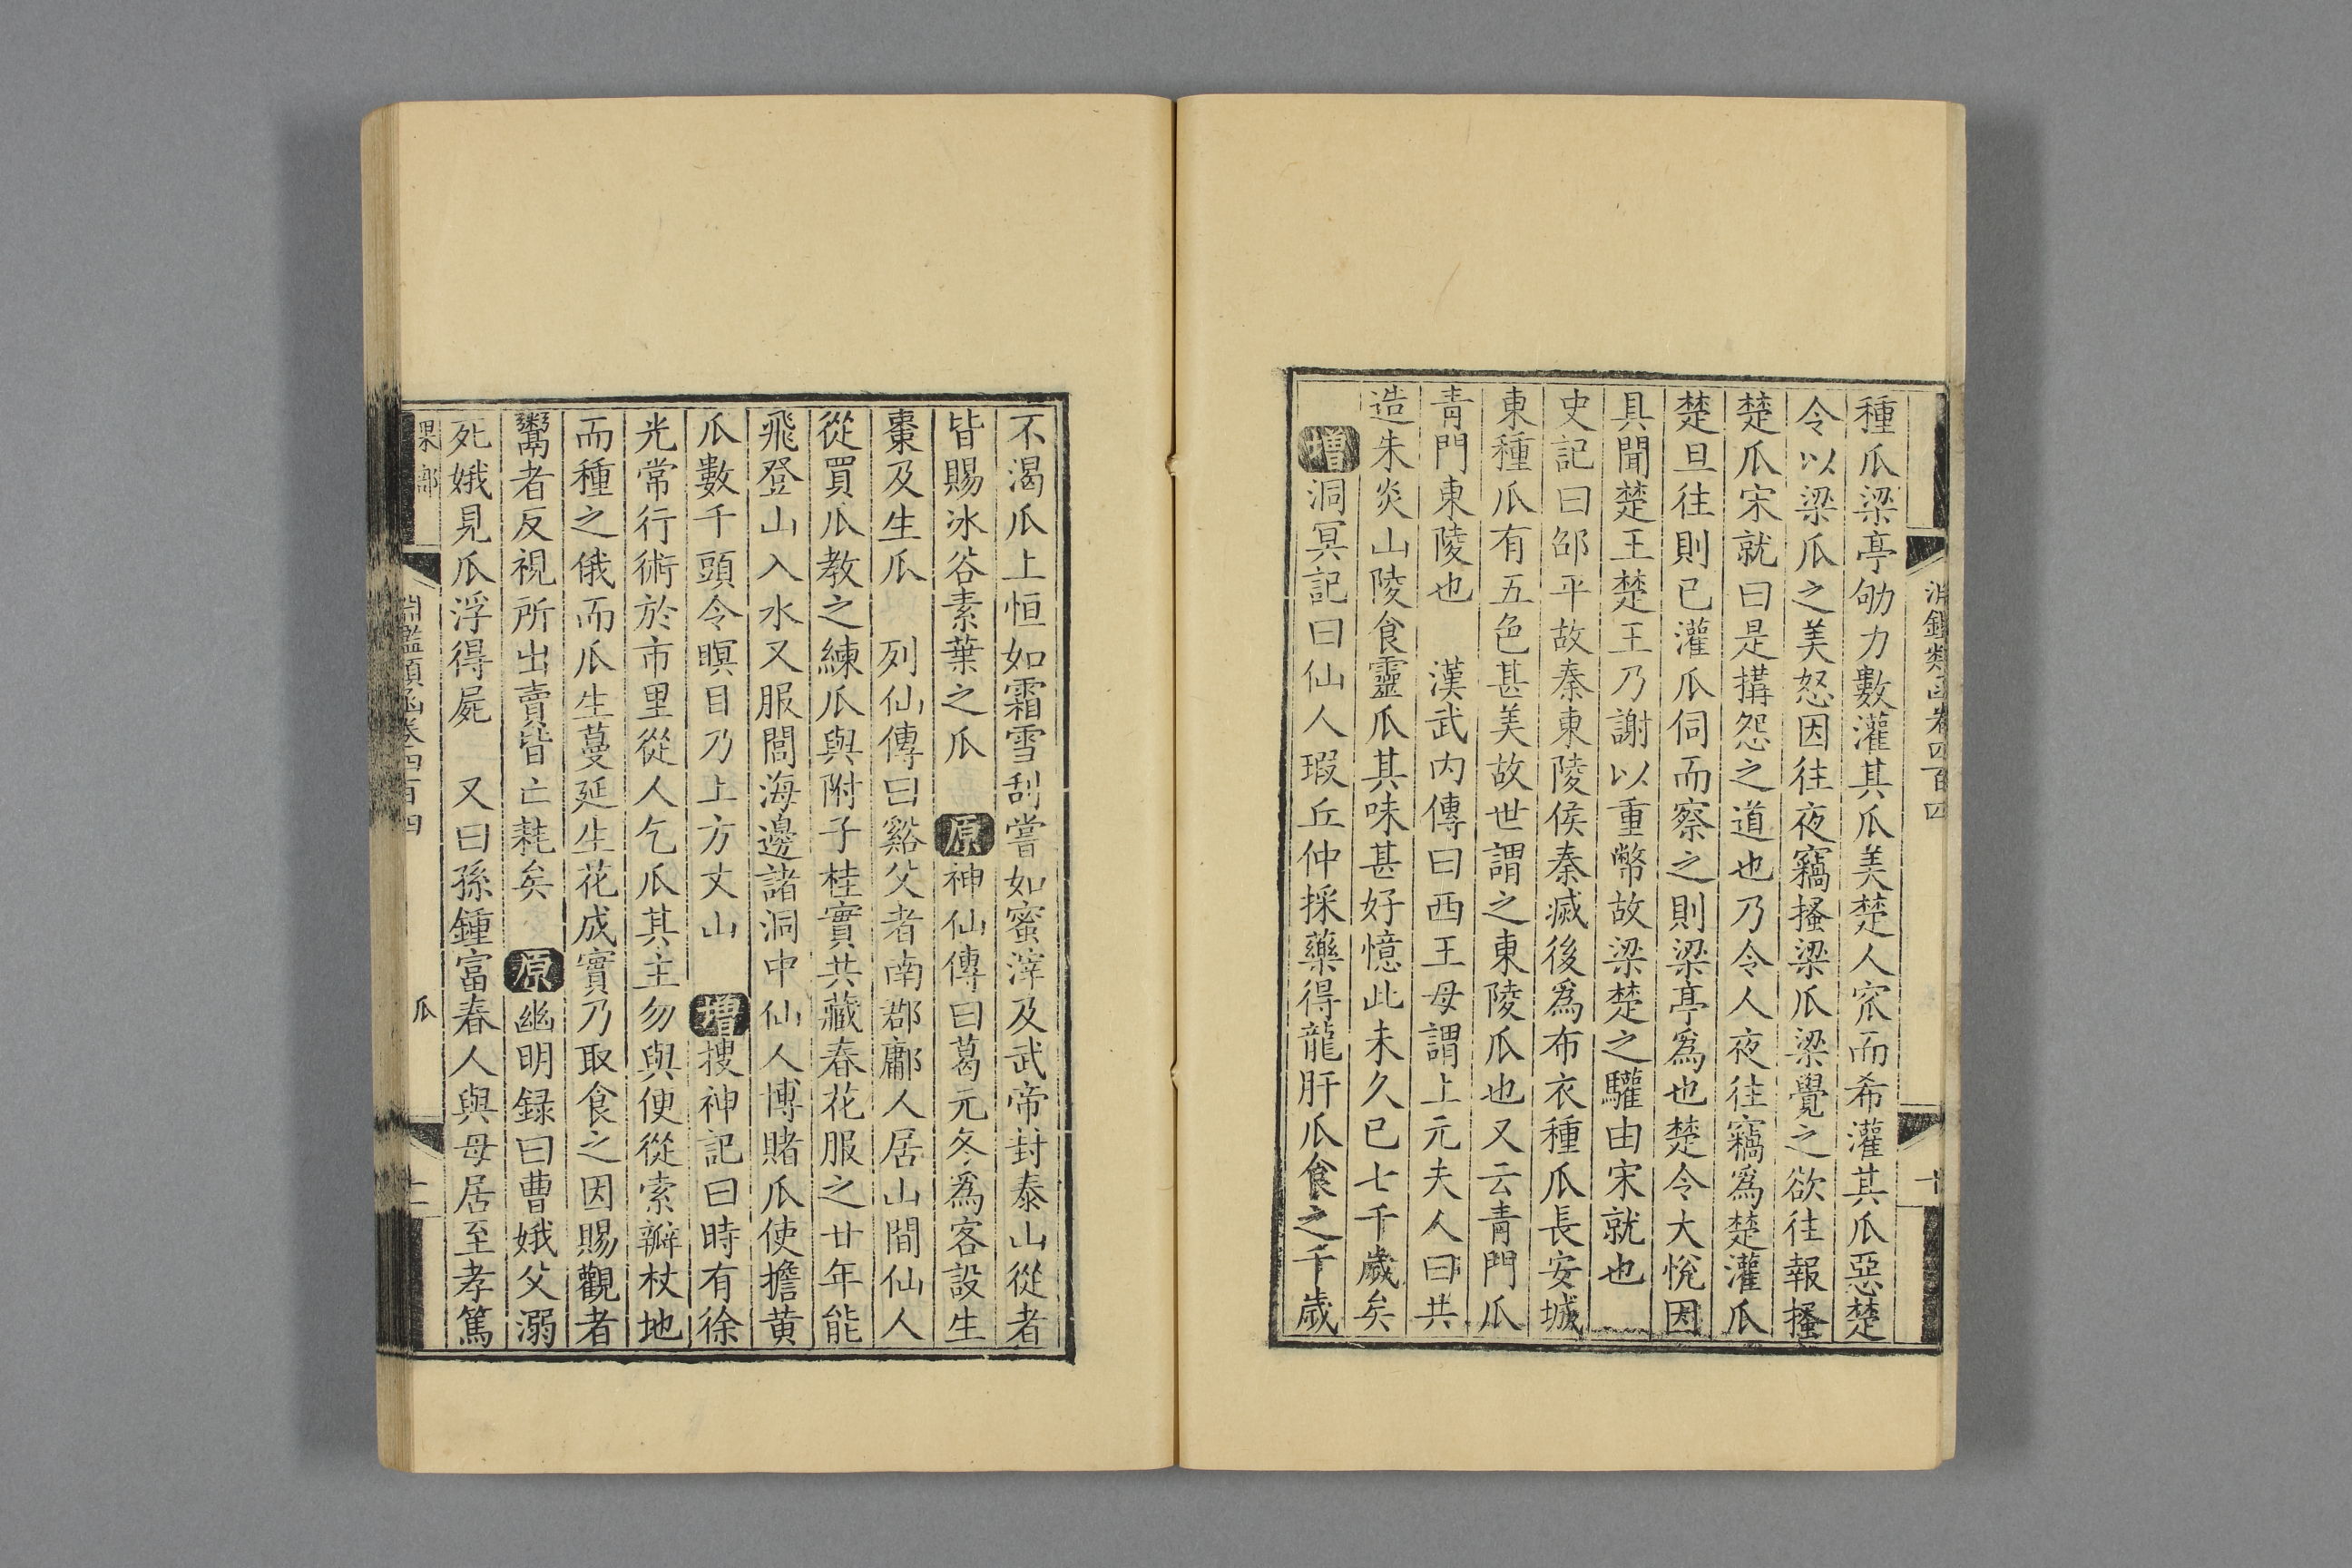 淵鑑類函卷四百四
十
種瓜梁亭劬力數灌其瓜美楚人窳而希灌其瓜惡楚
令以梁瓜之美怒因往夜竊搔梁瓜梁覺之欲往報搔
楚瓜宋就曰是搆怨之道也乃令人夜往竊爲楚灌瓜
楚旦往則已灌瓜伺而察之則梁亭爲也楚令大悅因
具聞楚王楚王乃謝以重幣故梁楚之驩由宋就也
史記曰邵平故秦東陵侯秦滅後爲布衣種瓜長安城
東種瓜有五色甚美故世謂之東陵瓜也又云青門瓜
青門東陵也　漢武內傳曰西王母謂上元夫人曰共
造朱炎山陵食靈瓜其味甚好憶此未久已七千歲矣
增洞冥記曰仙人瑕丘仲採藥得龍肝瓜食之千歲
不渴瓜上恒如霜雪刮嘗如蜜滓及武帝封泰山從者
皆賜冰谷素葉之瓜　原神仙傳曰葛元冬爲客設生
棗及生瓜　列仙傳曰谿父者南郡鄘人居山間仙人
從買瓜教之練瓜與附子桂實共藏春花服之廿年能
飛登山入水又服閭海邊諸洞中仙人博賭瓜使擔黃
瓜數千頭令瞑目乃上方丈山　增搜神記曰時有徐
光常行術於市里從人乞瓜其主勿與便從索瓣杖地
而種之俄而瓜生蔓延生花成實乃取食之因賜觀者
鬻者反視所出賣皆亡耗矣　原幽明録曰曹娥父溺
死娥見瓜浮得屍　又曰孫鍾富春人與母居至孝篤
果部
淵鑑類函卷四百四
瓜
十一